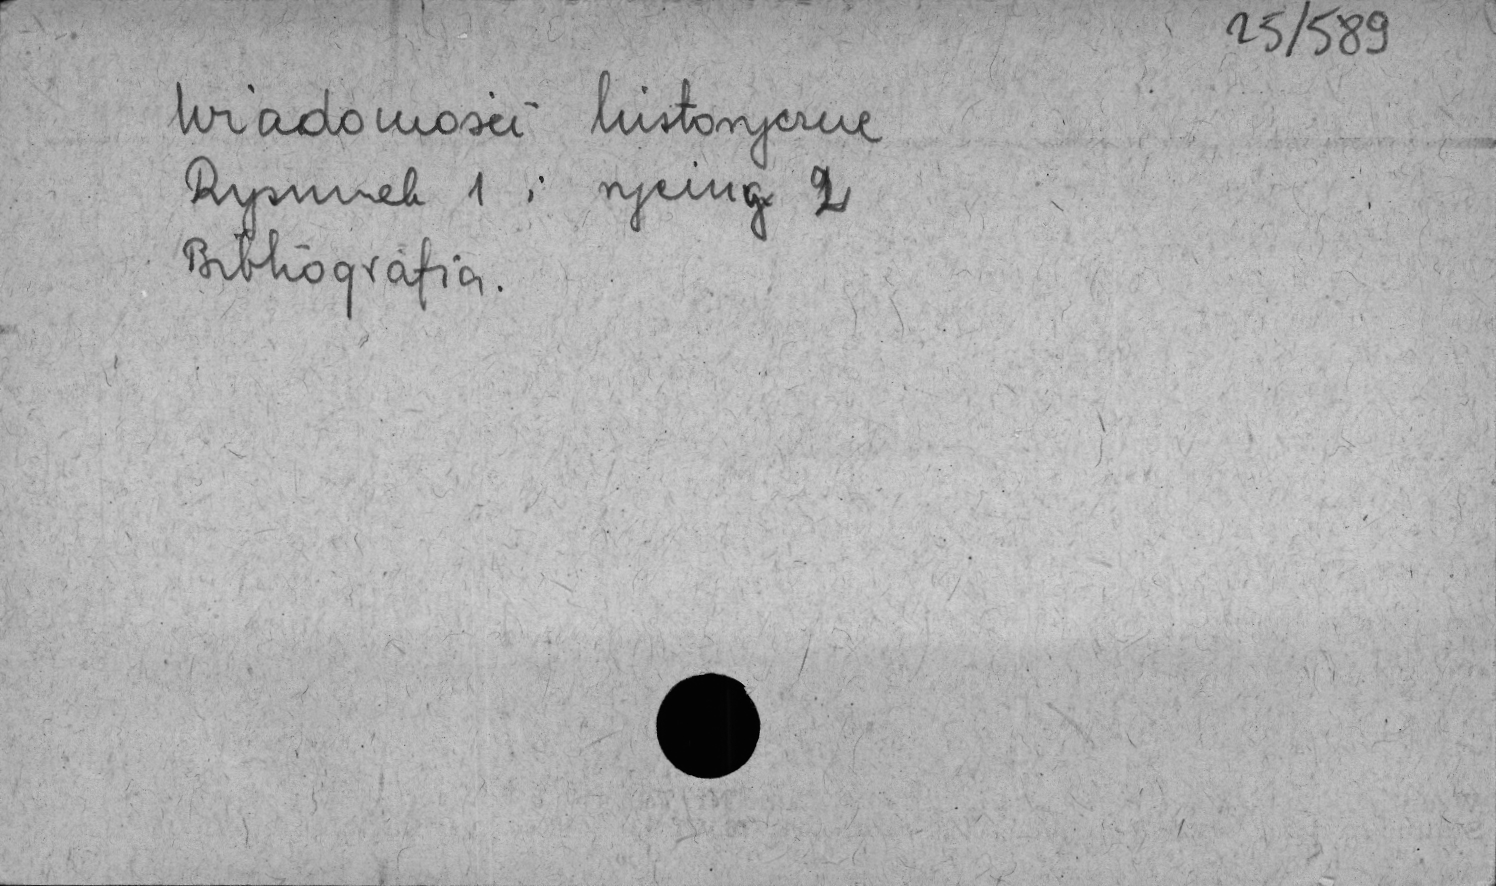 25/589
Wiadomości historyczne
Rysunek 1 i rycing 2
Bibliografia.